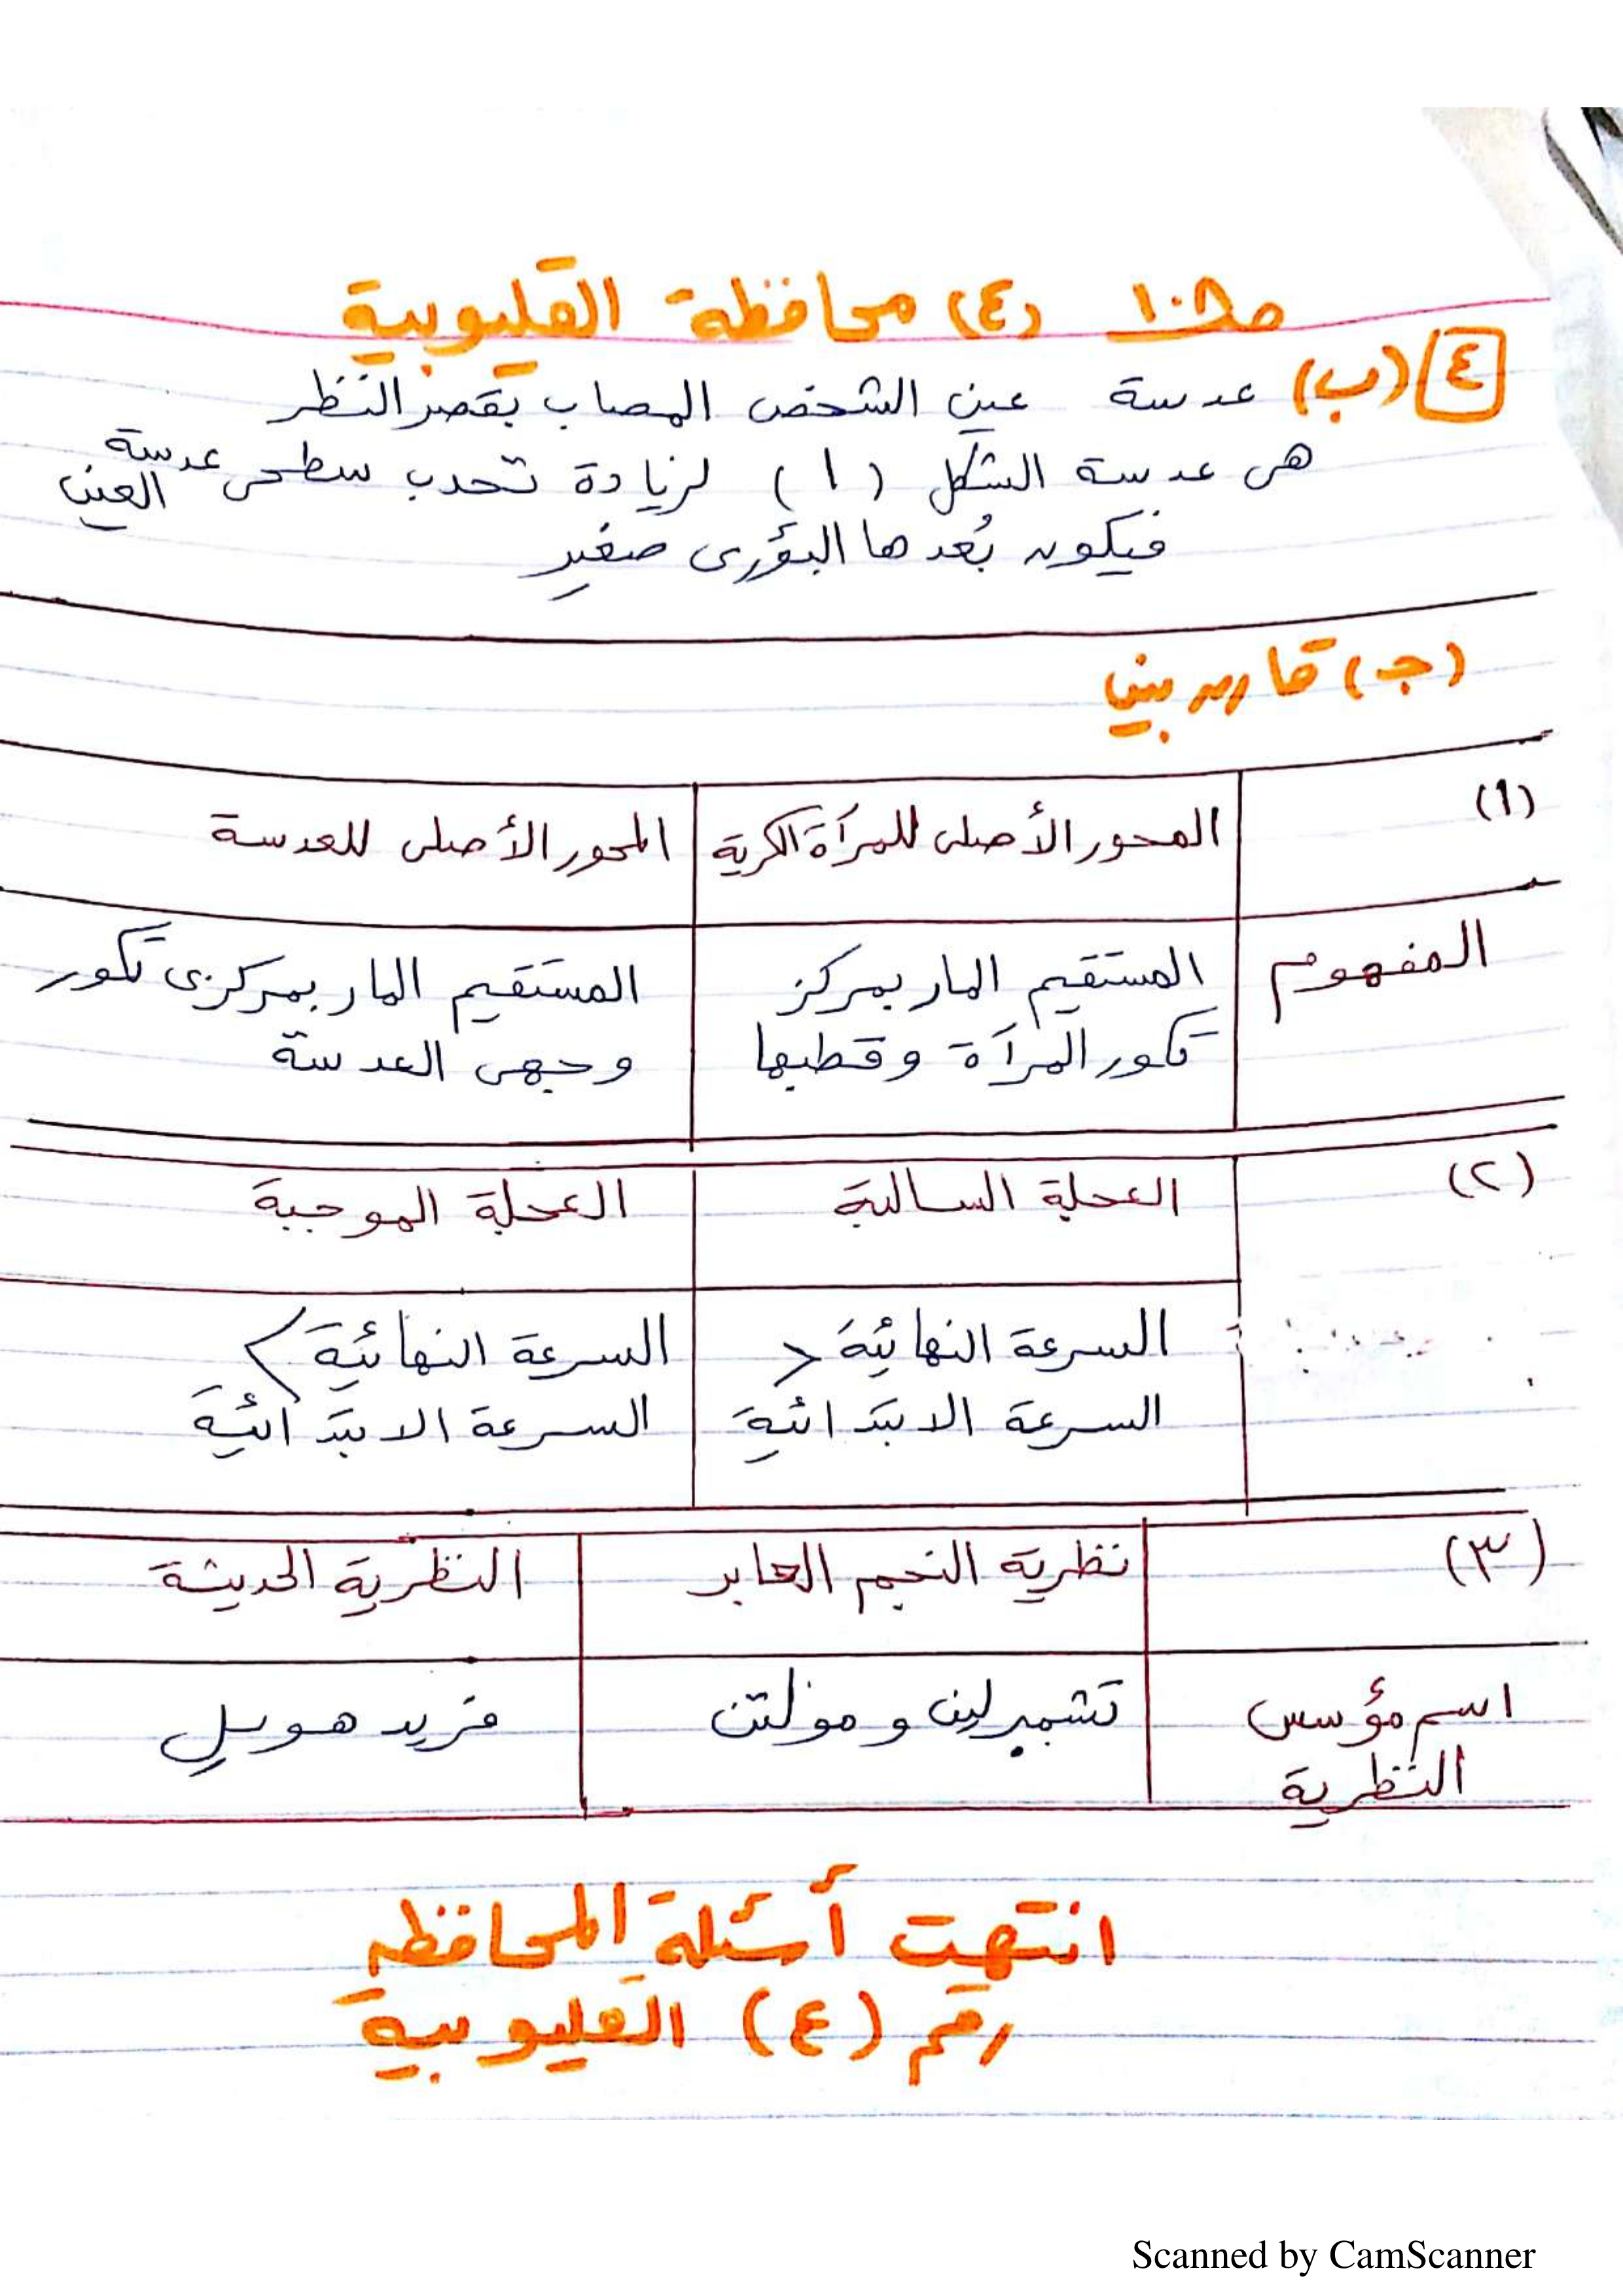 ص١٠٨ (٤) محافظة القليوبية
٤ (ب) عدسة عين الشخص المصاب بقصر النظر
هى عدسة الشكل (١) لزيادة تحدب سطحى عدسة العين
فيكون بُعدها البؤرى صغير
(جـ) قارن بين
(١) المحور الأصلى للمرآة الكرية المحور الأصلى للعدسة
المفهوم المستقيم المار بمركز المستقيم المار بمركزى تكور
تكور المرآة وقطبها وجهى العدسة
(٢) العجلة السالبة العجلة الموجبة
السرعة النهائية < السرعة النهائية >
السرعة الابتدائية السرعة الابتدائية
(٣) نظرية النجم العابر النظرية الحديثة
اسم مؤسس تشمبرلين و مولتن فريد هويل
النظرية
انتهت أسئلة المحافظة
رقم (٤) القليوبية
Scanned by CamScanner